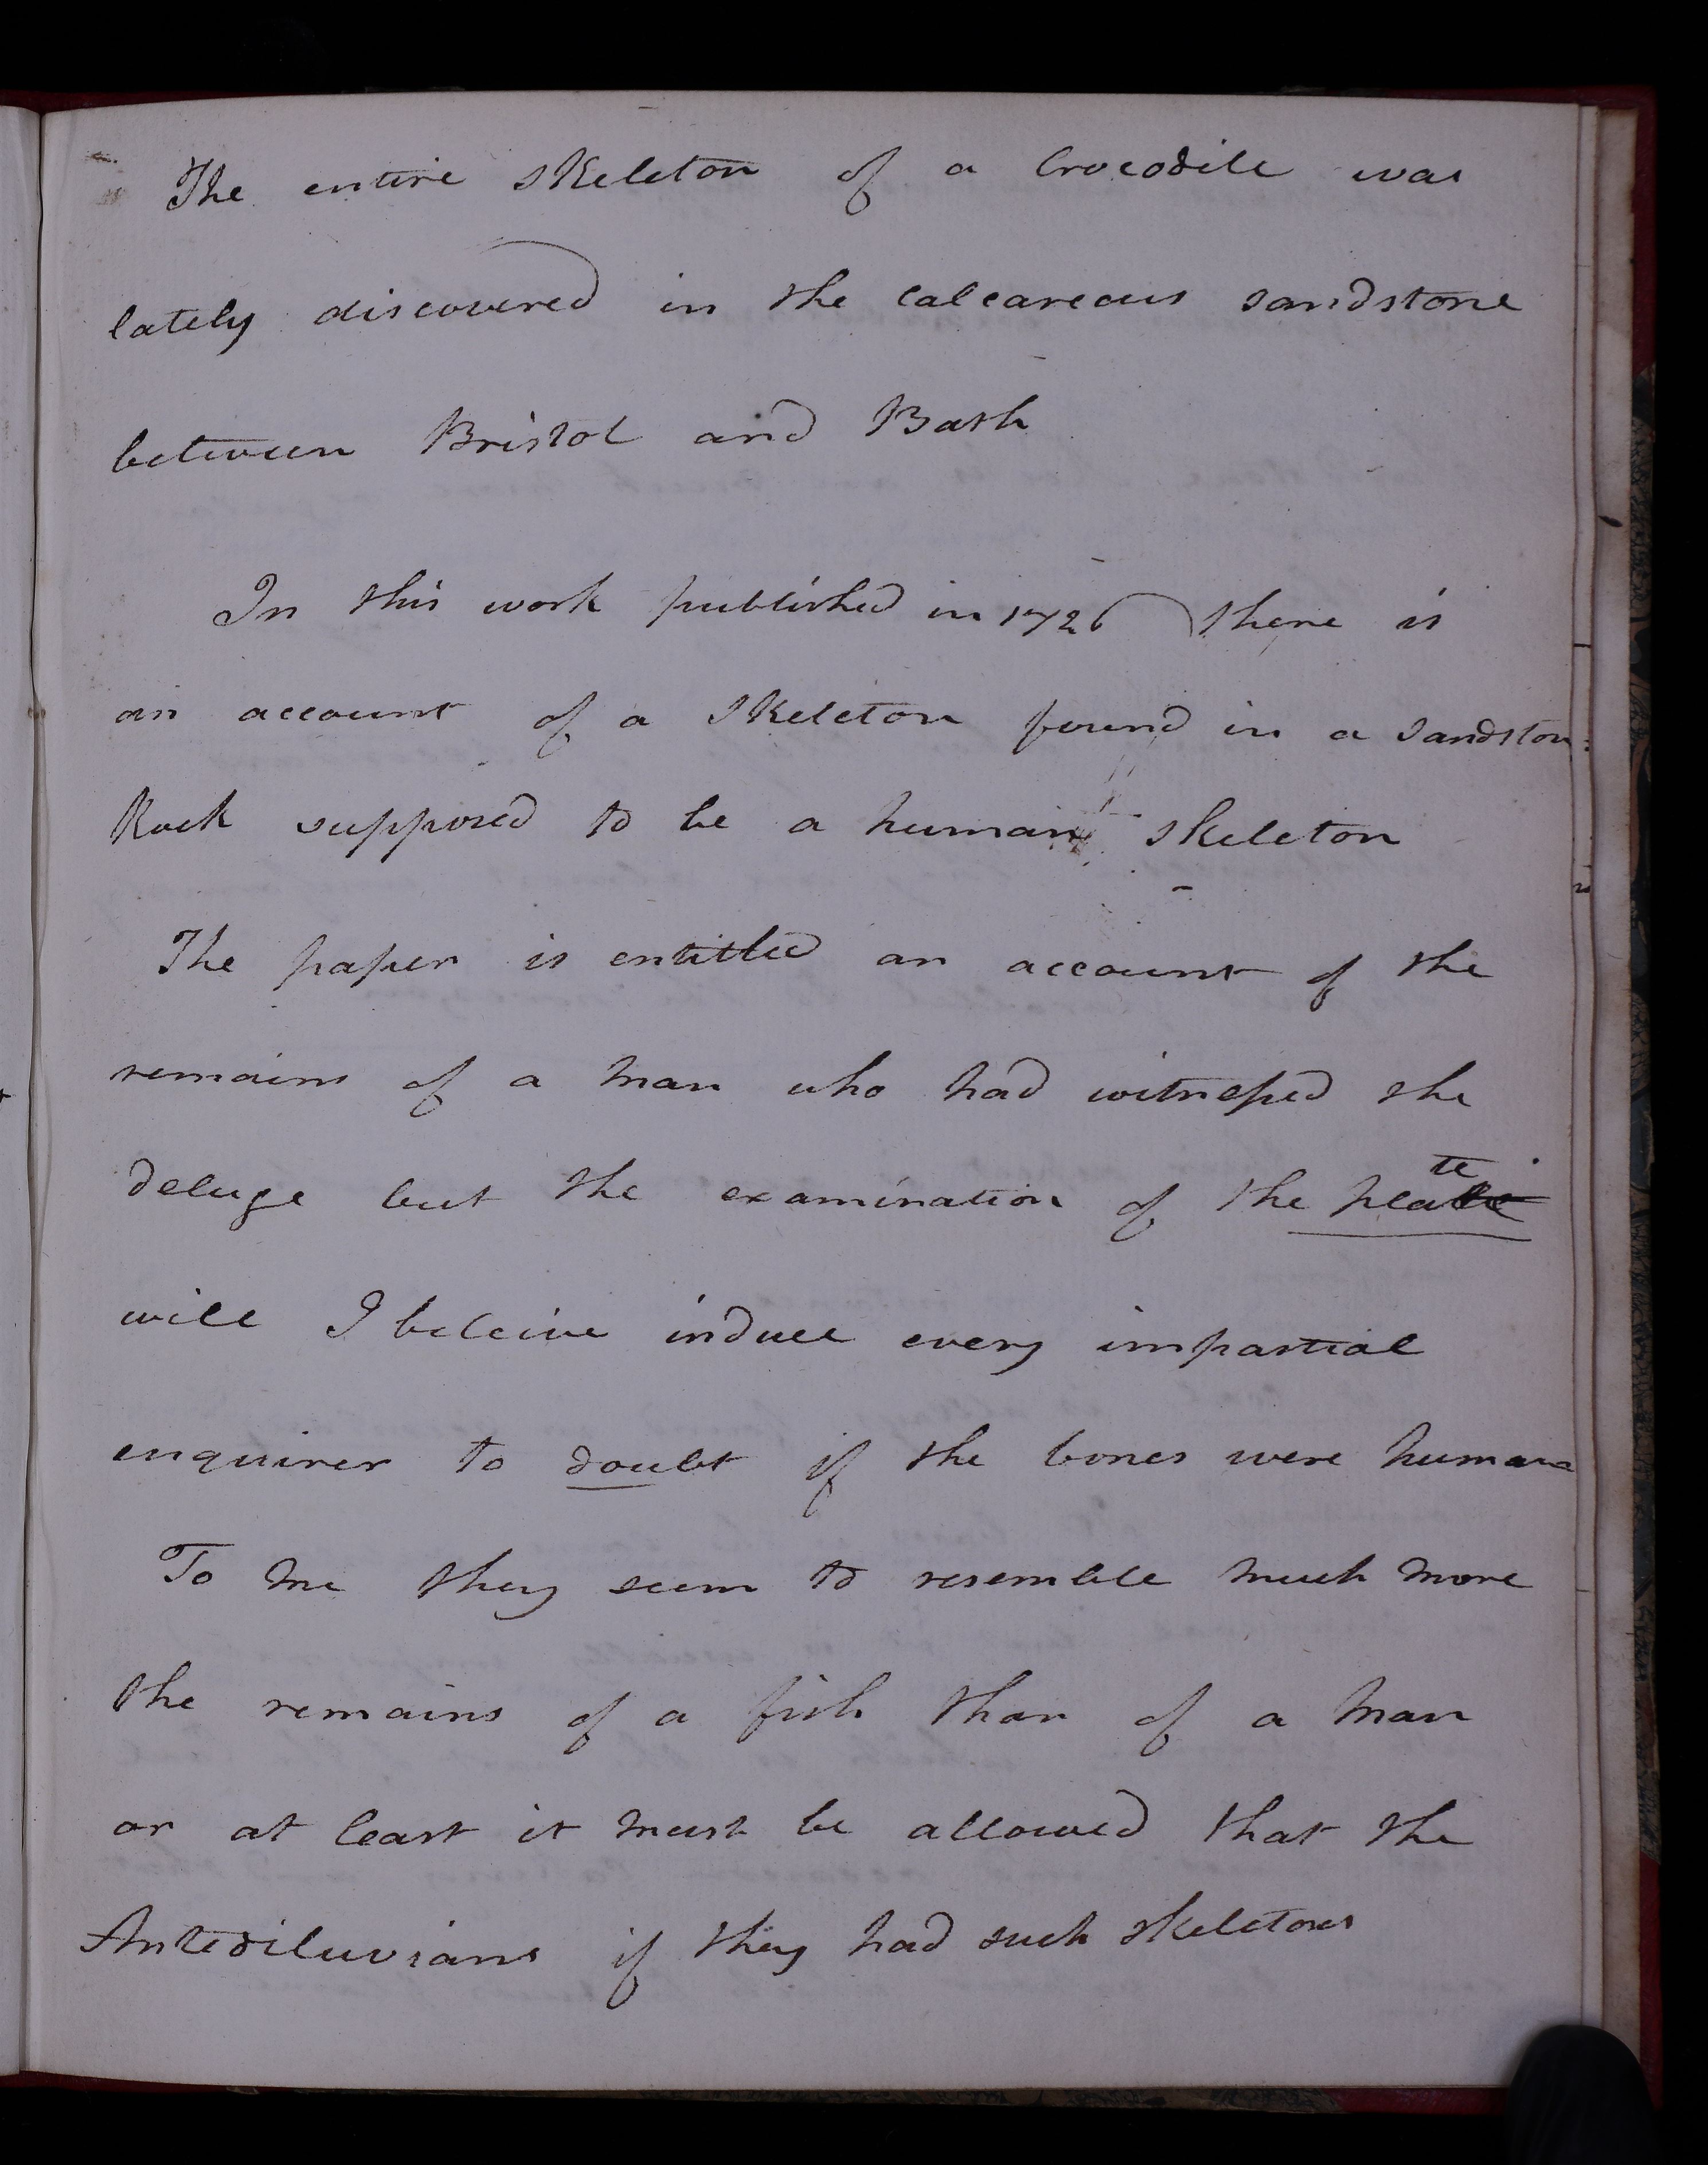 The entire skeleton of a Crocodile was
lately discovered in the calcareous sandstone
between Bristol and Bath
In this work published in 1726 there is
an account of a skeleton found in a sandstone
Rock supposed to be a human skeleton
The paper is entitled an account of the
remains of a man who had witnessed the
te
deluge but the examination of the pla
will I beleive induce every impartial
enquirer to doubt if the bones were human
To me they seem to resemble much more
the remains of a fish than of a man
or at least it must be allowed that the
Antediluvians if they had such skeletons